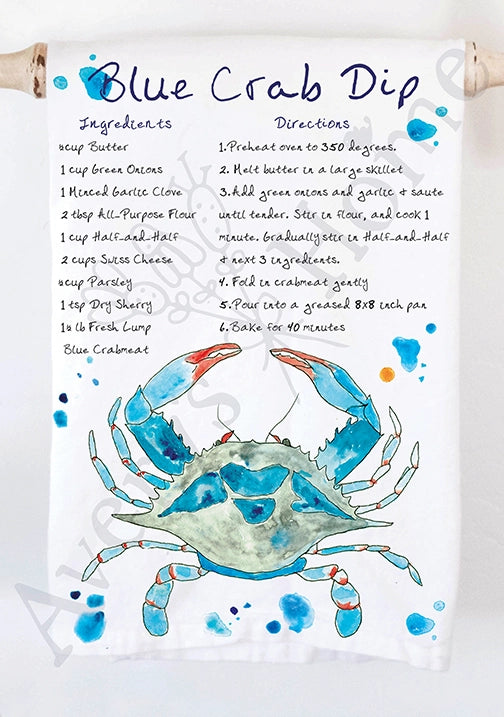 Blue Crab Dip
Ingredients
cup Butter
1 cup Green Onions
1 Minced Garlic Clove
2 tbsp All-Purpose Flour
1 cup Half-and-Half
2 cups Swiss Cheese
cup Parsley
1 tsp Dry Sherry
lb Fresh Lump
Blue Crabmeat
Directions
1.Preheat oven to 350 degrees.
2. Melt butter in a large skillet
3.Add green onions and garlic & saute
until tender. Stir in flour, and cook 1
minute. Gradually stir in Half-and-Half
& next 3 ingredients.
4. Fold in crabmeat gently
5.Pour into a greased 8x8 inch pan
6.Bake for 40 minutes
Home